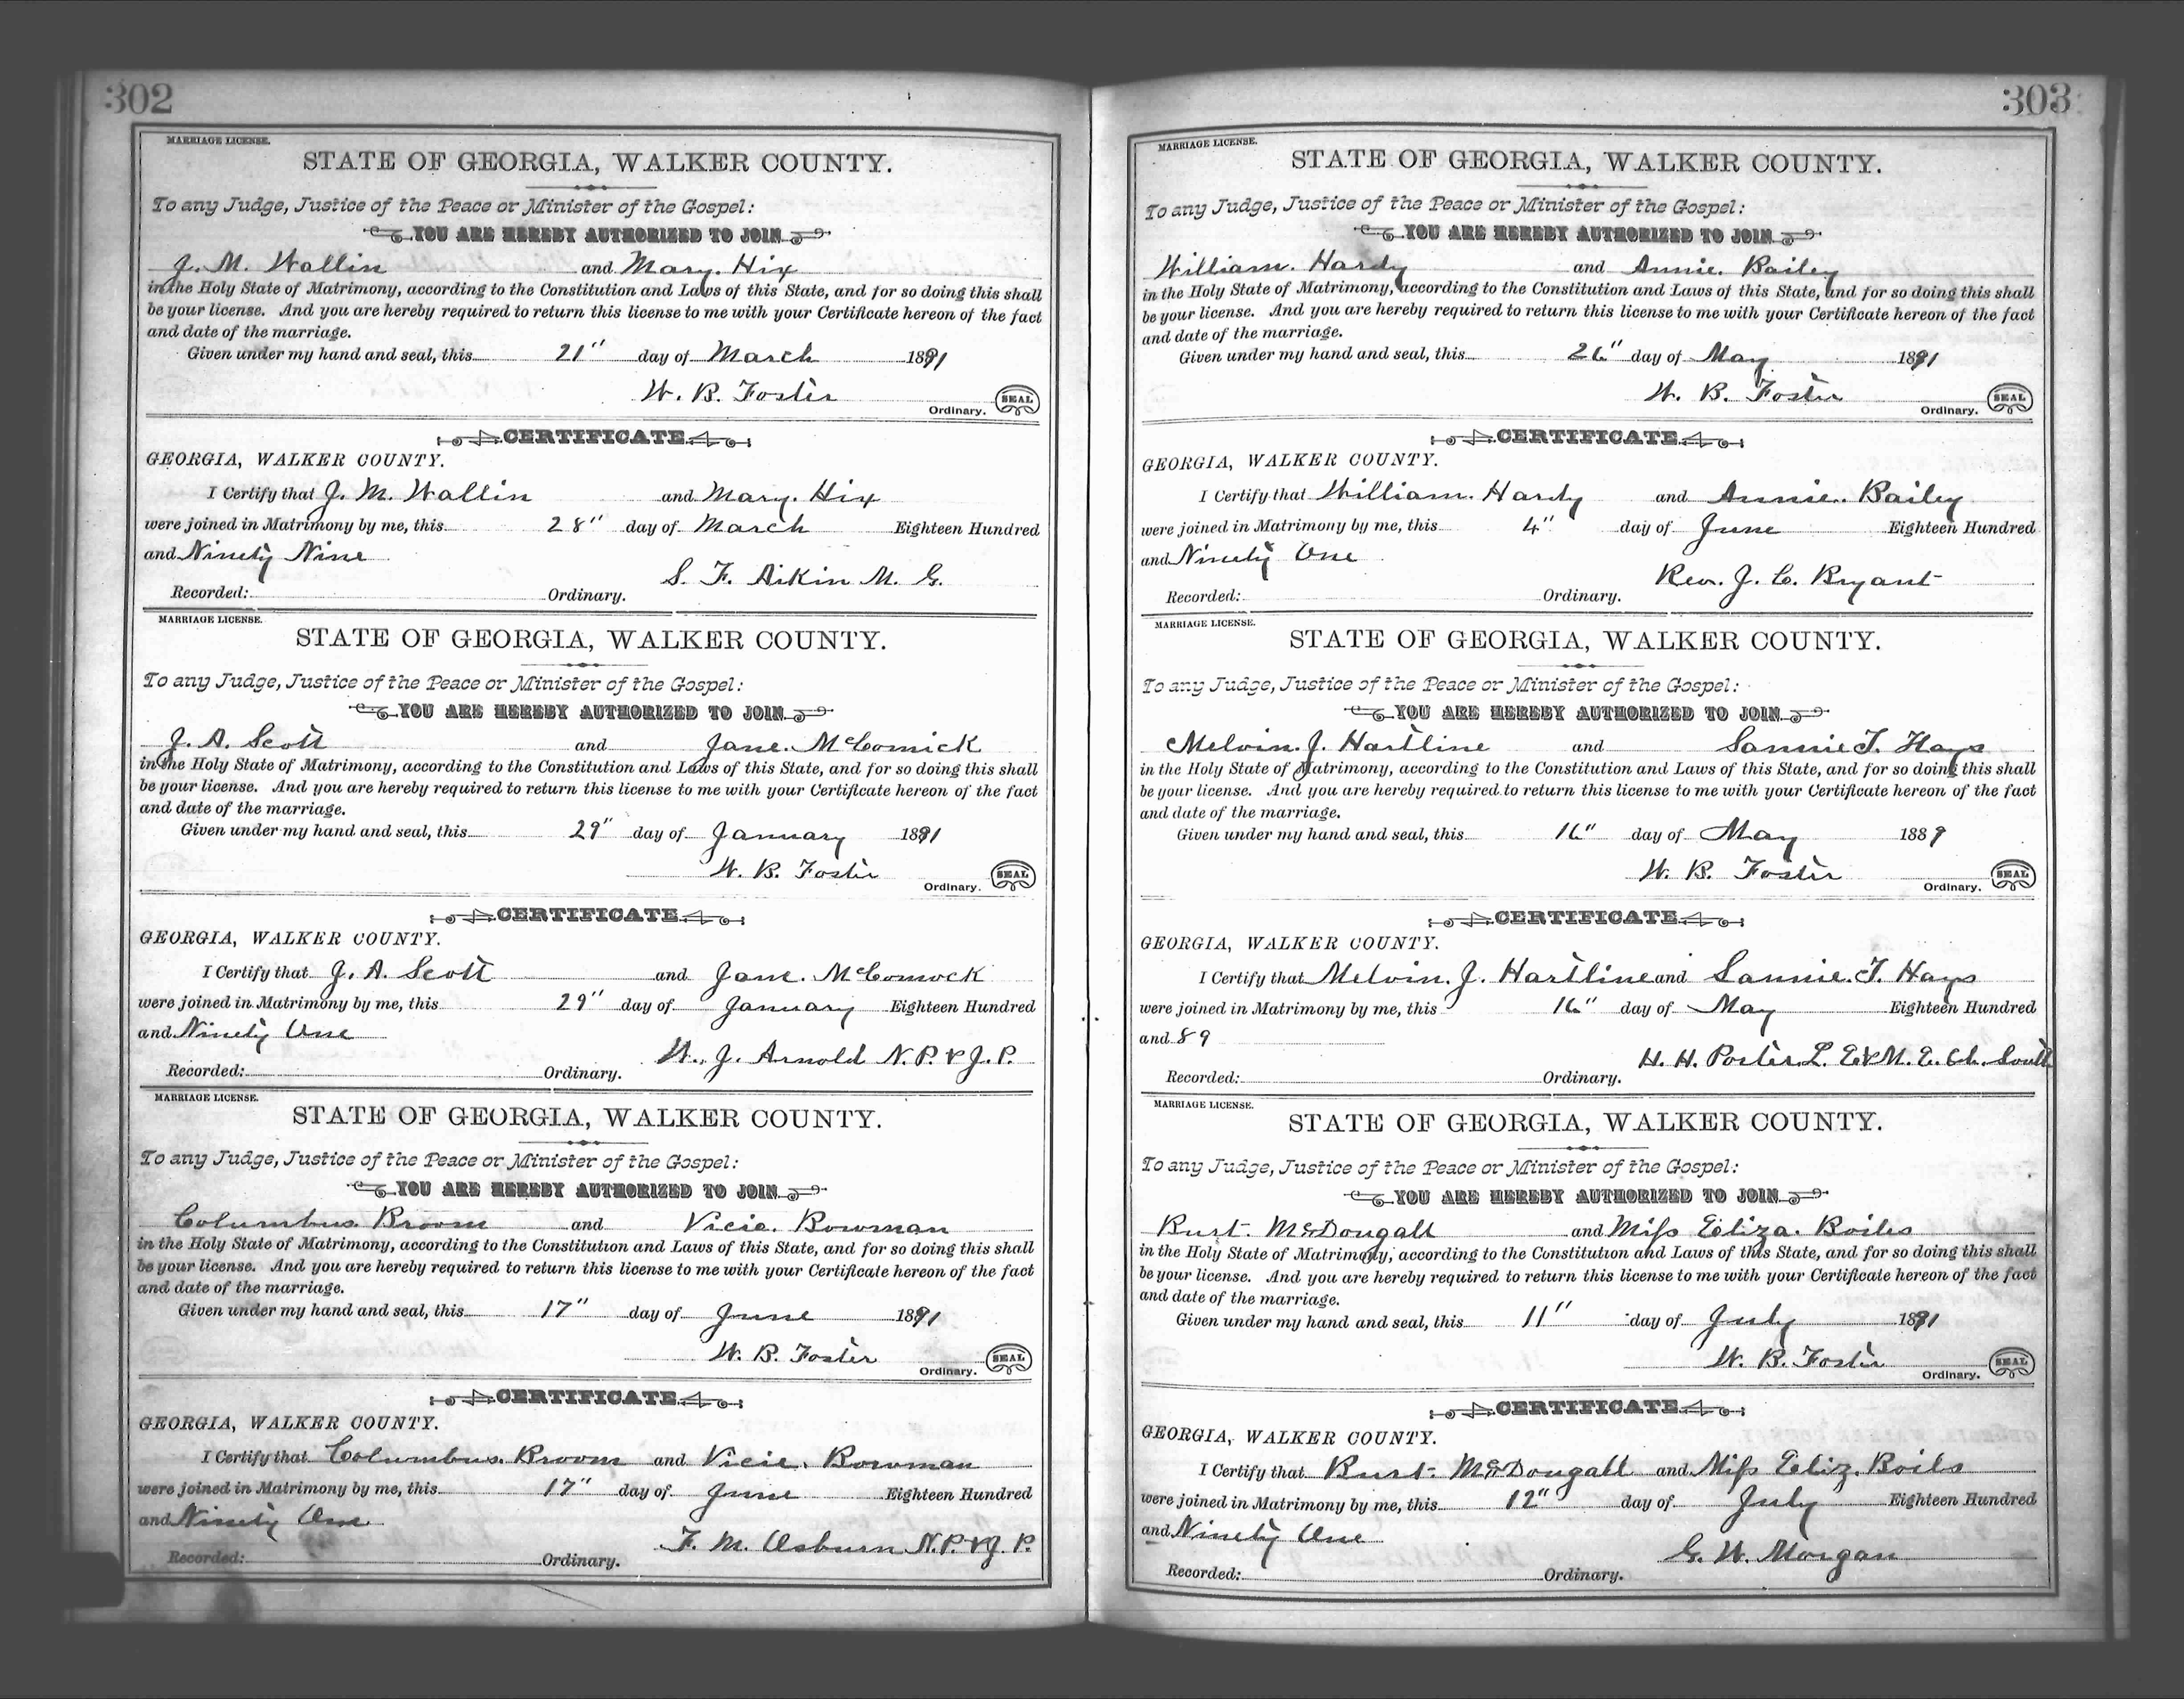 302
MARRIAGE LICENSE.
STATE OF GEORGIA, WALKER COUNTY.
To any Judge, Justice of the Peace or Minister of the Gospel:
YOU ARE HEREBY AUTHORIZED TO JOIN
J. M. Wallin and Mary. Hix
in the Holy State of Matrimony, according to the Constitution and Laws of this State, and for so doing this shall
be your license. And you are hereby required to return this license to me with your Certificate hereon of the fact
and date of the marriage.
Given under my hand and seal, this 21" day of March 1891
W. B. Foster
Ordinary. SEAL
CERTIFICATE
GEORGIA, WALKER COUNTY.
I Certify that J. M. Wallin and Mary. Hix
were joined in Matrimony by me, this 28" day of March Eighteen Hundred
and Ninety Nine
S. F. Aikin M. G.
Recorded: Ordinary.
MARRIAGE LICENSE.
STATE OF GEORGIA, WALKER COUNTY.
To any Judge, Justice of the Peace or Minister of the Gospel:
YOU ARE HEREBY AUTHORIZED TO JOIN
J. A. Scott and Jane. McComick
in the Holy State of Matrimony, according to the Constitution and Laws of this State, and for so doing this shall
be your license. And you are hereby required to return this license to me with your Certificate hereon of the fact
and date of the marriage.
Given under my hand and seal, this 29" day of January 1891
W. B. Foster
Ordinary. SEAL
CERTIFICATE
GEORGIA, WALKER COUNTY.
I Certify that J. A. Scott and Jane. McComock
were joined in Matrimony by me, this 29" day of January Eighteen Hundred
and Ninety One
W. J. Arnold N. P. & J. P.
Recorded: Ordinary.
MARRIAGE LICENSE.
STATE OF GEORGIA, WALKER COUNTY.
To any Judge, Justice of the Peace or Minister of the Gospel:
YOU ARE HEREBY AUTHORIZED TO JOIN
Columbus Broom and Vicie. Bowman
in the Holy State of Matrimony, according to the Constitution and Laws of this State, and for so doing this shall
be your license. And you are hereby required to return this license to me with your Certificate hereon of the fact
and date of the marriage.
Given under my hand and seal, this 17" day of June 1891
W. B. Foster
Ordinary. SEAL
CERTIFICATE
GEORGIA, WALKER COUNTY.
I Certify that Columbus. Broom and Vicie. Bowman
were joined in Matrimony by me, this 17" day of June Eighteen Hundred
and Ninety One
F. M. Osburn N. P. & J. P.
Recorded: Ordinary.
303
MARRIAGE LICENSE.
STATE OF GEORGIA, WALKER COUNTY.
To any Judge, Justice of the Peace or Minister of the Gospel:
YOU ARE HEREBY AUTHORIZED TO JOIN
William. Hardy and Annie. Bailey
in the Holy State of Matrimony, according to the Constitution and Laws of this State, and for so doing this shall
be your license. And you are hereby required to return this license to me with your Certificate hereon of the fact
and date of the marriage.
Given under my hand and seal, this 26" day of May 1891
W. B. Foster
Ordinary. SEAL
CERTIFICATE
GEORGIA, WALKER COUNTY.
I Certify that William. Hardy and Annie. Bailey
were joined in Matrimony by me, this 4" day of June Eighteen Hundred
and Ninety One
Rev. J. C. Bryant
Recorded: Ordinary.
MARRIAGE LICENSE.
STATE OF GEORGIA, WALKER COUNTY.
To any Judge, Justice of the Peace or Minister of the Gospel:
YOU ARE HEREBY AUTHORIZED TO JOIN
Melvin. J. Hartline and Sannie T. Hays
in the Holy State of Matrimony, according to the Constitution and Laws of this State, and for so doing this shall
be your license. And you are hereby required to return this license to me with your Certificate hereon of the fact
and date of the marriage.
Given under my hand and seal, this 16" day of May 1889
W. B. Foster
Ordinary. SEAL
CERTIFICATE
GEORGIA, WALKER COUNTY.
I Certify that Melvin. J. Hartline and Sannie. T. Hays
were joined in Matrimony by me, this 16" day of May Eighteen Hundred
and 89
H. H. Porter L. E & M. E. Ch. South
Recorded: Ordinary.
MARRIAGE LICENSE.
STATE OF GEORGIA, WALKER COUNTY.
To any Judge, Justice of the Peace or Minister of the Gospel:
YOU ARE HEREBY AUTHORIZED TO JOIN
Burt. McDougall and Miss Eliza. Boiles
in the Holy State of Matrimony, according to the Constitution and Laws of this State, and for so doing this shall
be your license. And you are hereby required to return this license to me with your Certificate hereon of the fact
and date of the marriage.
Given under my hand and seal, this 11" day of July 1891
W. B. Foster
Ordinary. SEAL
CERTIFICATE
GEORGIA, WALKER COUNTY.
I Certify that Burt. McDougall and Miss Eliz. Boils
were joined in Matrimony by me, this 12" day of July Eighteen Hundred
and Ninety One
G. W. Morgan
Recorded: Ordinary.